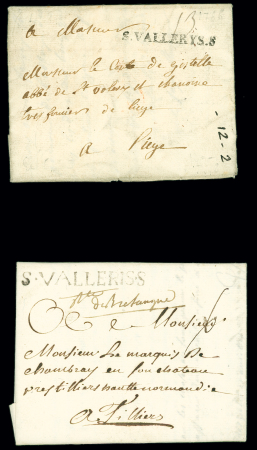 a Monsieur
13
S.VALLERYS.S
Monsieur le Cte de gistelle
abbé de St valery et chanoine
de liege
a Liege
12-2
S.VALLERISS
Hte de Bretangne
a Monsieur
Monsieur Le marquis De
chambray en son chateau
pres tilliers hautte normandie
a Tilliers